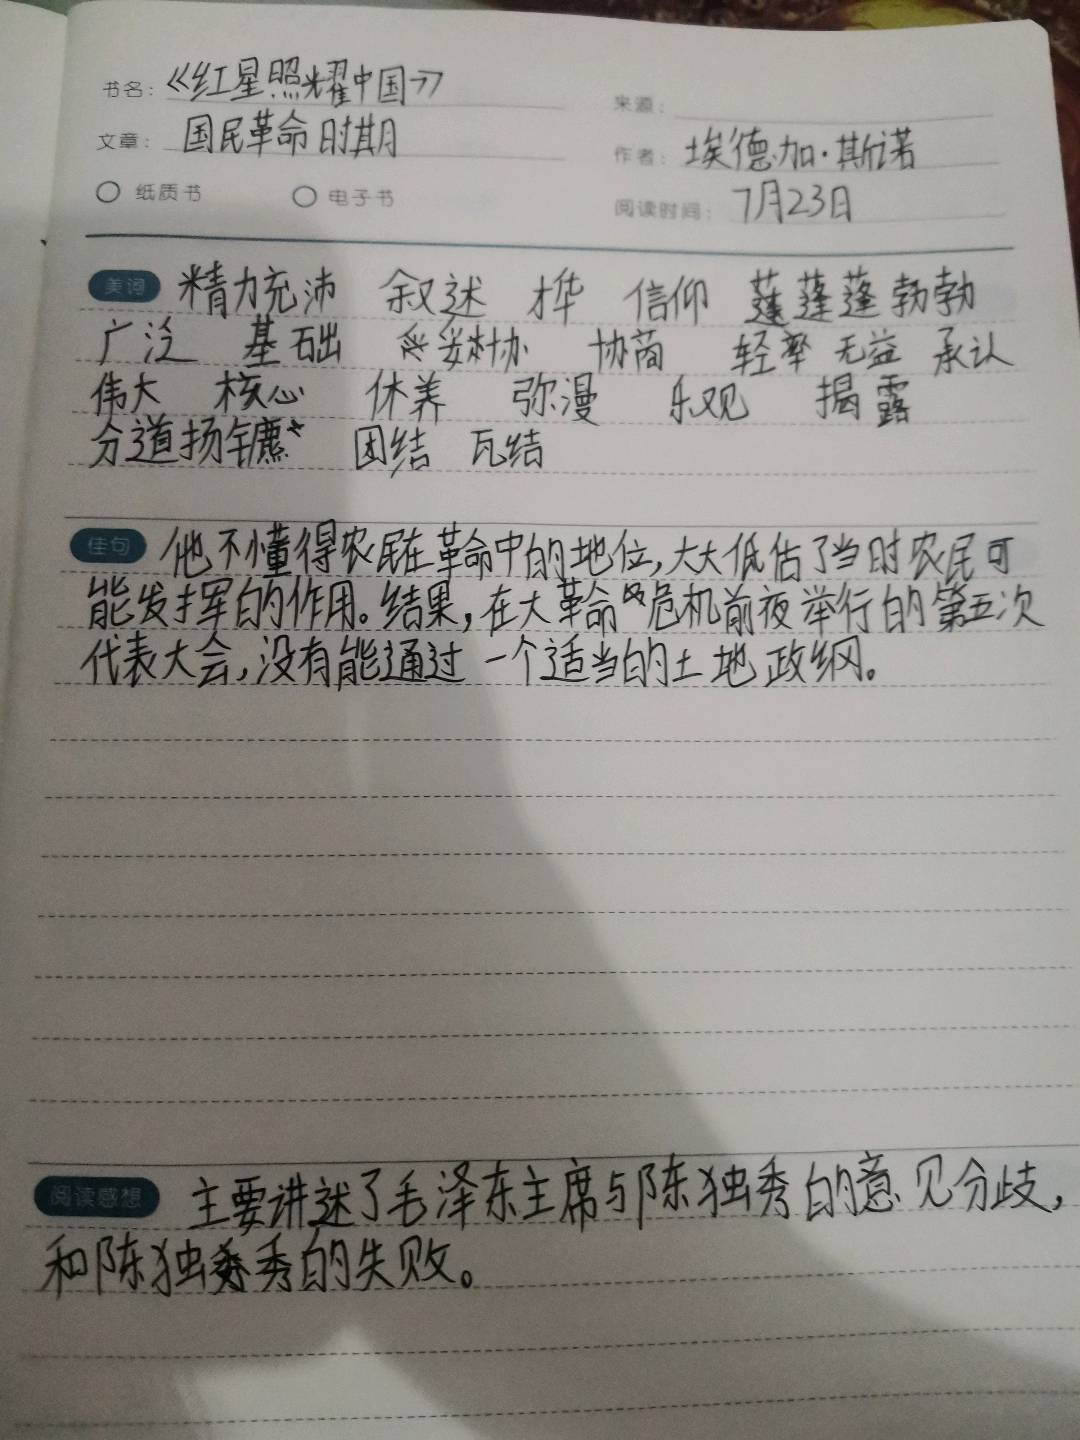 书名：《红星照耀中国》
来源：
文章：国民革命时期
作者：埃德加·斯诺
纸质书 电子书
阅读时间：7月23日
美词 精力充沛 叙述 桦 信仰 蓬蓬蓬勃勃
广泛 基础 妥协 协商 轻率 无益 承认
伟大 核心 休养 弥漫 乐观 揭露
分道扬镳 团结 瓦结
佳句 他不懂得农民在革命中的地位，大大低估了当时农民可
能发挥的作用。结果，在大革命危机前夜举行的第五次
代表大会，没有能通过一个适当的土地政纲。
阅读感想 主要讲述了毛泽东主席与陈独秀的意见分歧，
和陈独秀的失败。